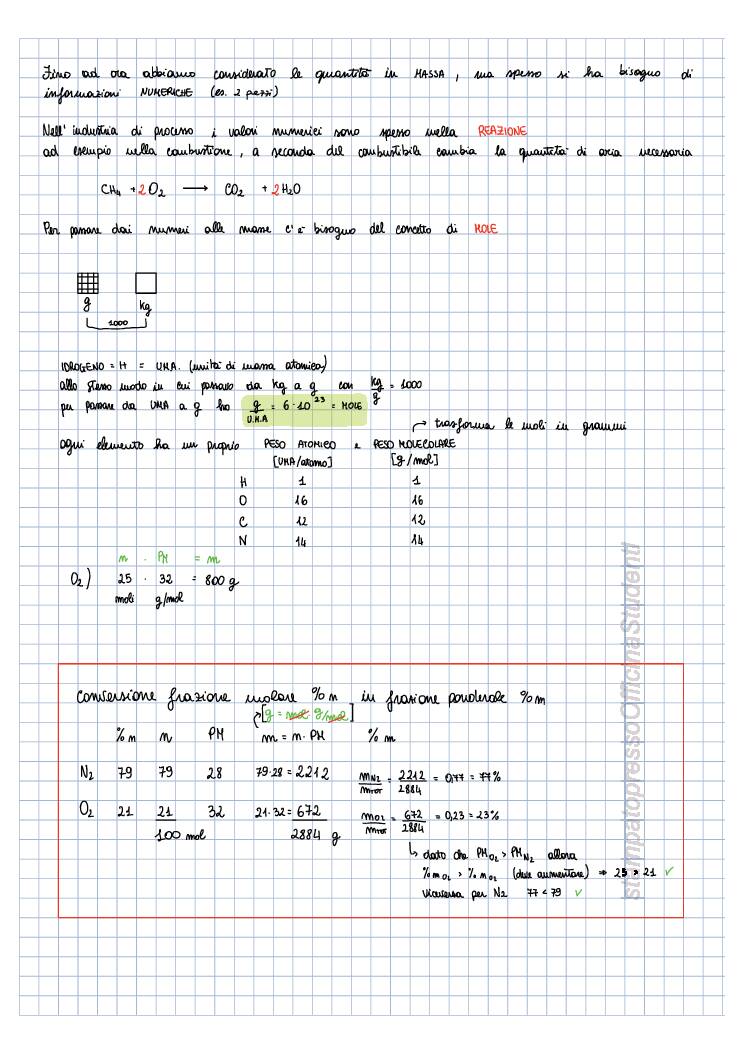 Fino ad ora abbiamo considerato le quantità in MASSA, ma spesso si ha bisogno di
informazioni NUMERICHE (es. 2 pezzi)
Nell'industria di processo i valori numerici sono spesso nella REAZIONE
ad esempio nella combustione, a seconda del combustibile cambia la quantità di aria necessaria
CH4 + 2 O2 → CO2 + 2 H2O
Per passare dai numeri alle masse c'è bisogno del concetto di MOLE
g kg
1000
IDROGENO = H = UMA. (unità di massa atomica)
allo stesso modo in cui passavo da kg a g con kg/g = 1000
per passare da UMA a g ho g/U.M.A = 6·10^23 = MOLE
→ trasforma le moli in grammi
ogni elemento ha un proprio PESO ATOMICO e PESO MOLECOLARE
[UMA/atomo] [g/mol]
H 1 1
O 16 16
C 12 12
N 14 14
n · PM = m
O2) 25 · 32 = 800 g
moli g/mol
Conversione frazione molare % n in frazione ponderale % m
[g = mol · g/mol]
% n n PM m = n · PM % m
N2 79 79 28 79·28 = 2212 mN2/mTOT = 2212/2884 = 0,77 = 77%
O2 21 21 32 21·32 = 672 mO2/mTOT = 672/2884 = 0,23 = 23%
100 mol 2884 g
↳ dato che PM O2 > PM N2 allora
% m O2 > % m O2 (deve aumentare) ⇒ 23 > 21 ✓
viceversa per N2 77 < 79 ✓
stampatopressoOfficinaStudenti